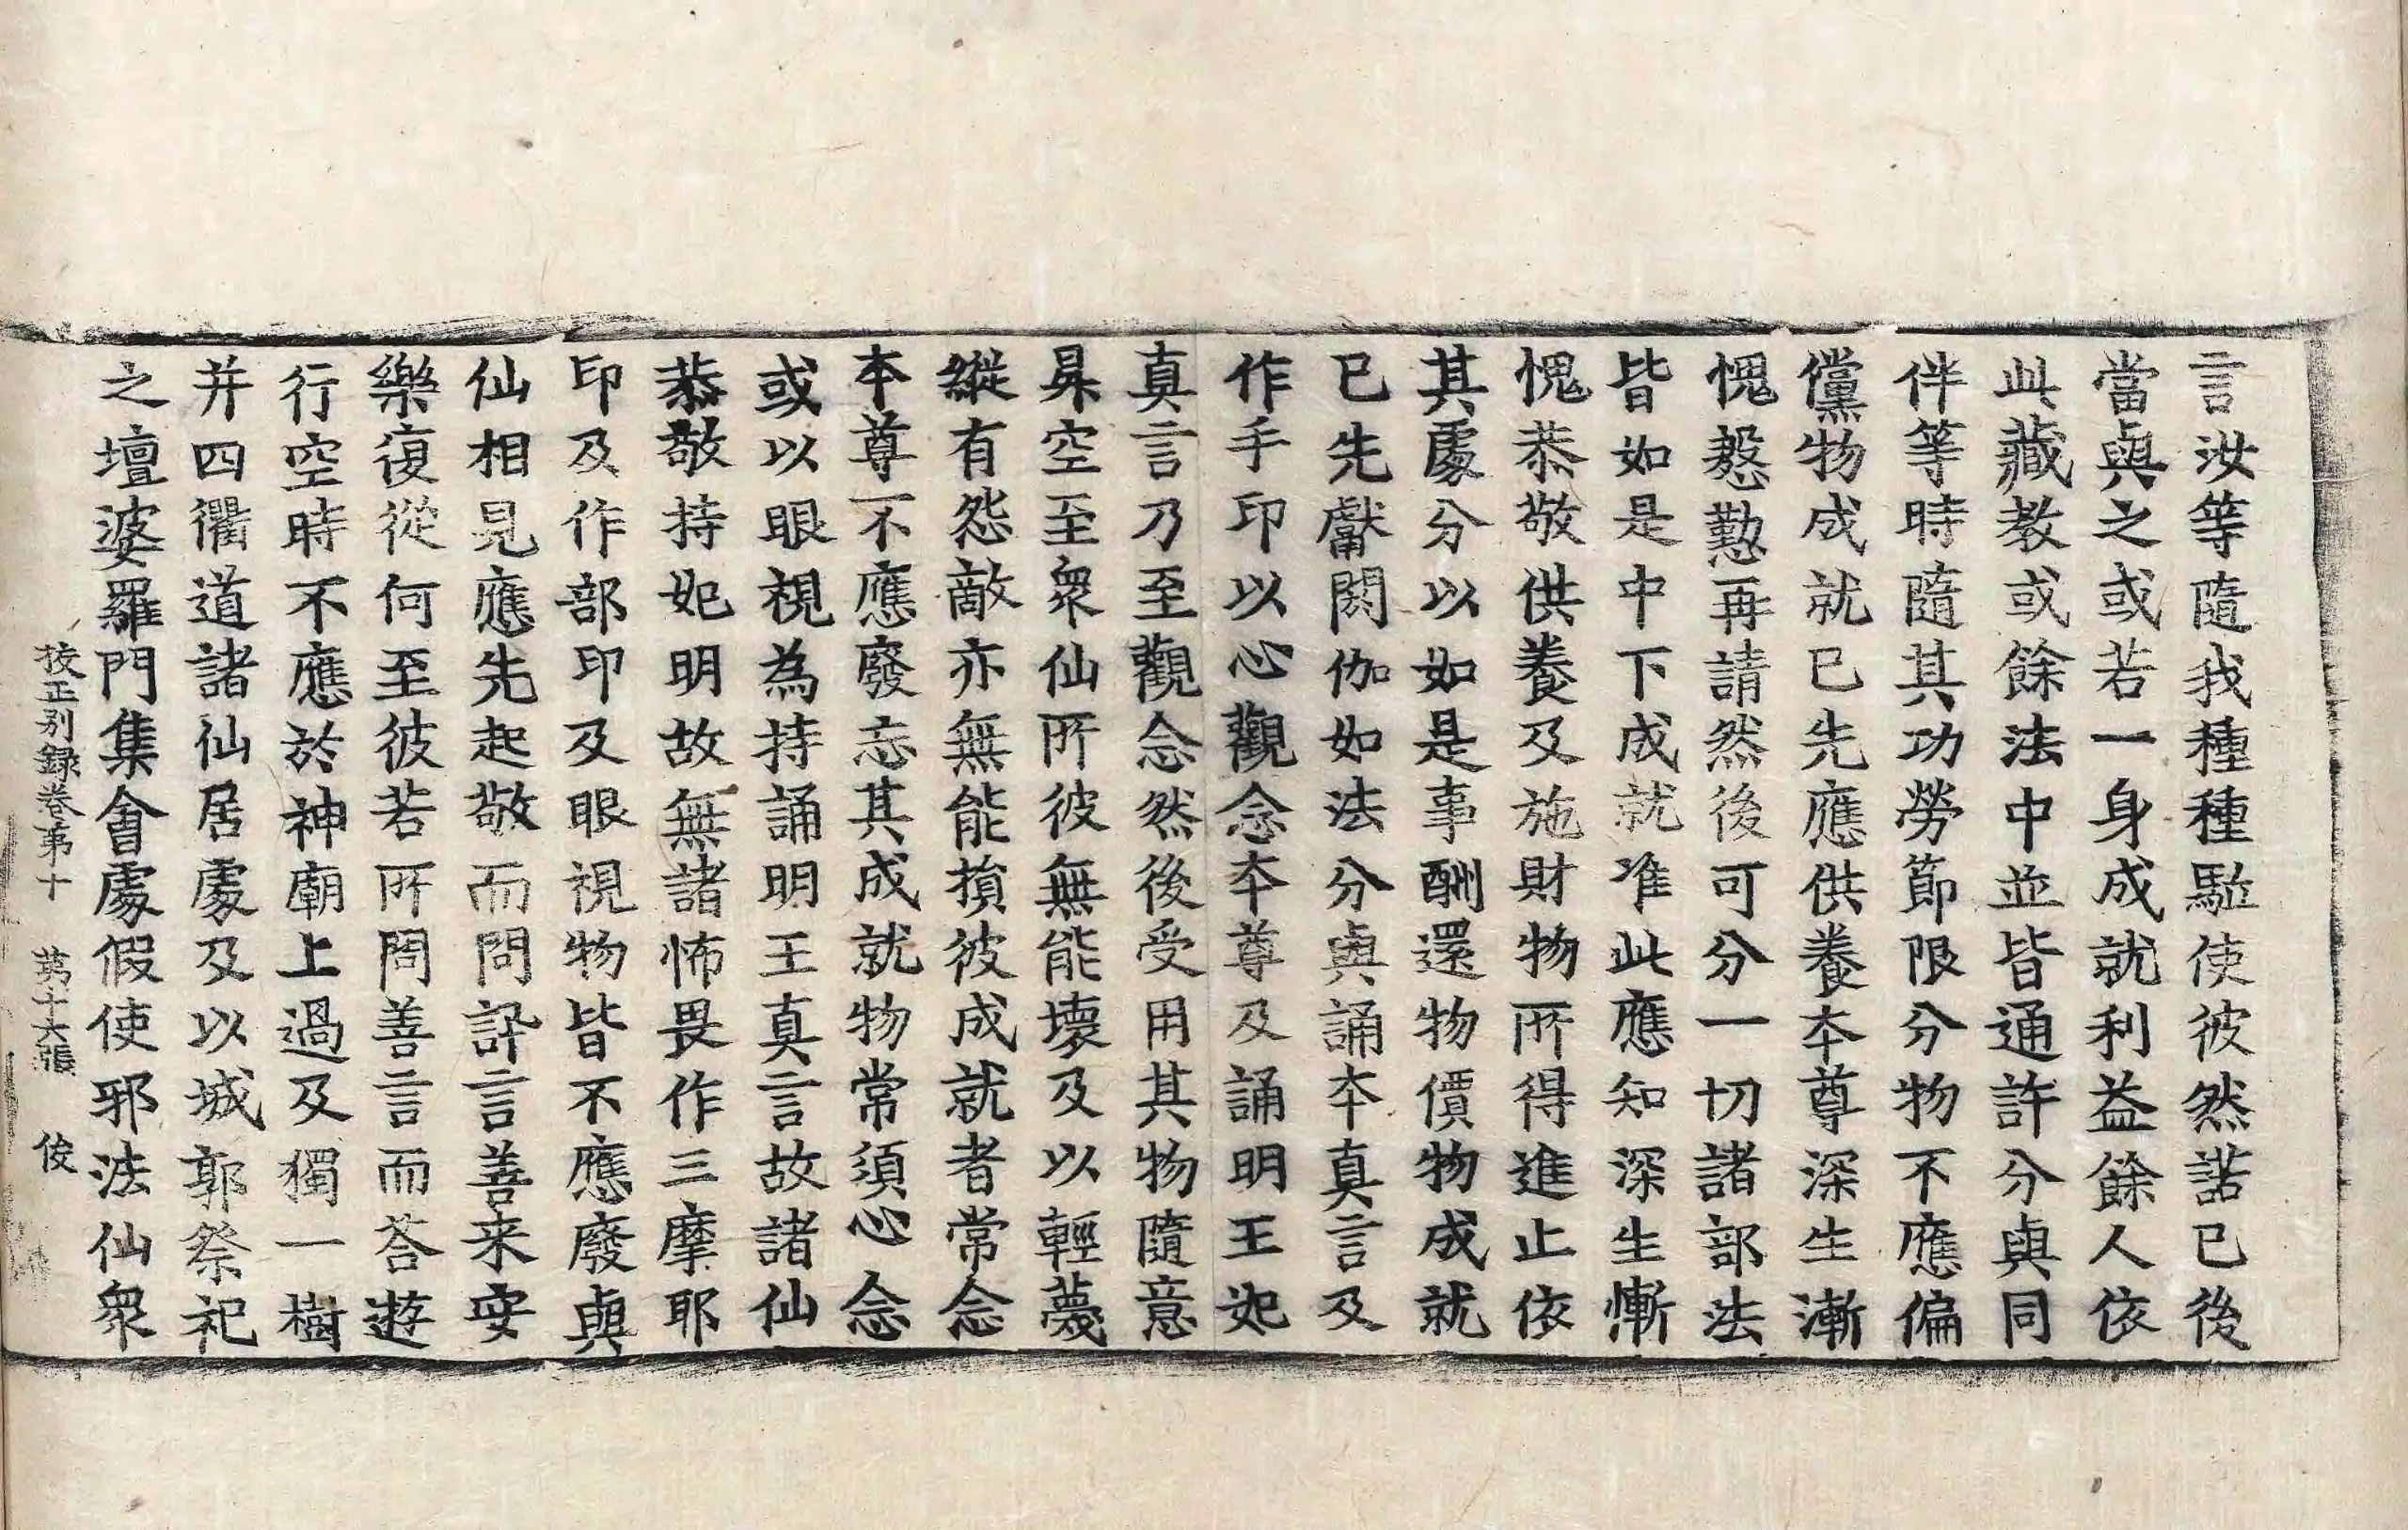 言汝等隨我種種駈使彼然諾已後
當與之或若一身成就利益餘人依
此藏教或餘法中並皆通許分與同
伴等時隨其功勞節限分物不應偏
儻物成就已先應供養本尊深生漸
愧慇懃再請然後可分一切諸部法
皆如是中下成就准此應知深生慚
愧恭敬供養及施財物所得進止依
其處分以如是事酬還物價物成就
已先獻閼伽如法分與誦本真言及
作手印以心觀念本尊及誦明王妃
真言乃至觀念然後受用其物隨意
昇空至衆仙所彼無能壞及以輕蔑
縱有怨敵亦無能損彼成就者常念
本尊不應廢忘其成就物常須心念
或以眼視為持誦明王真言故諸仙
恭敬持妃明故無諸怖畏作三摩耶
印及作部印及眼視物皆不應廢與
仙相見應先起敬而問訊言善来安
樂復從何至彼若所問善言而荅遊
行空時不應於神廟上過及獨一樹
并四衢道諸仙居處及以城郭祭祀
之壇婆羅門集會處假使邪法仙衆
挍正别録卷第十　第十六張　俊